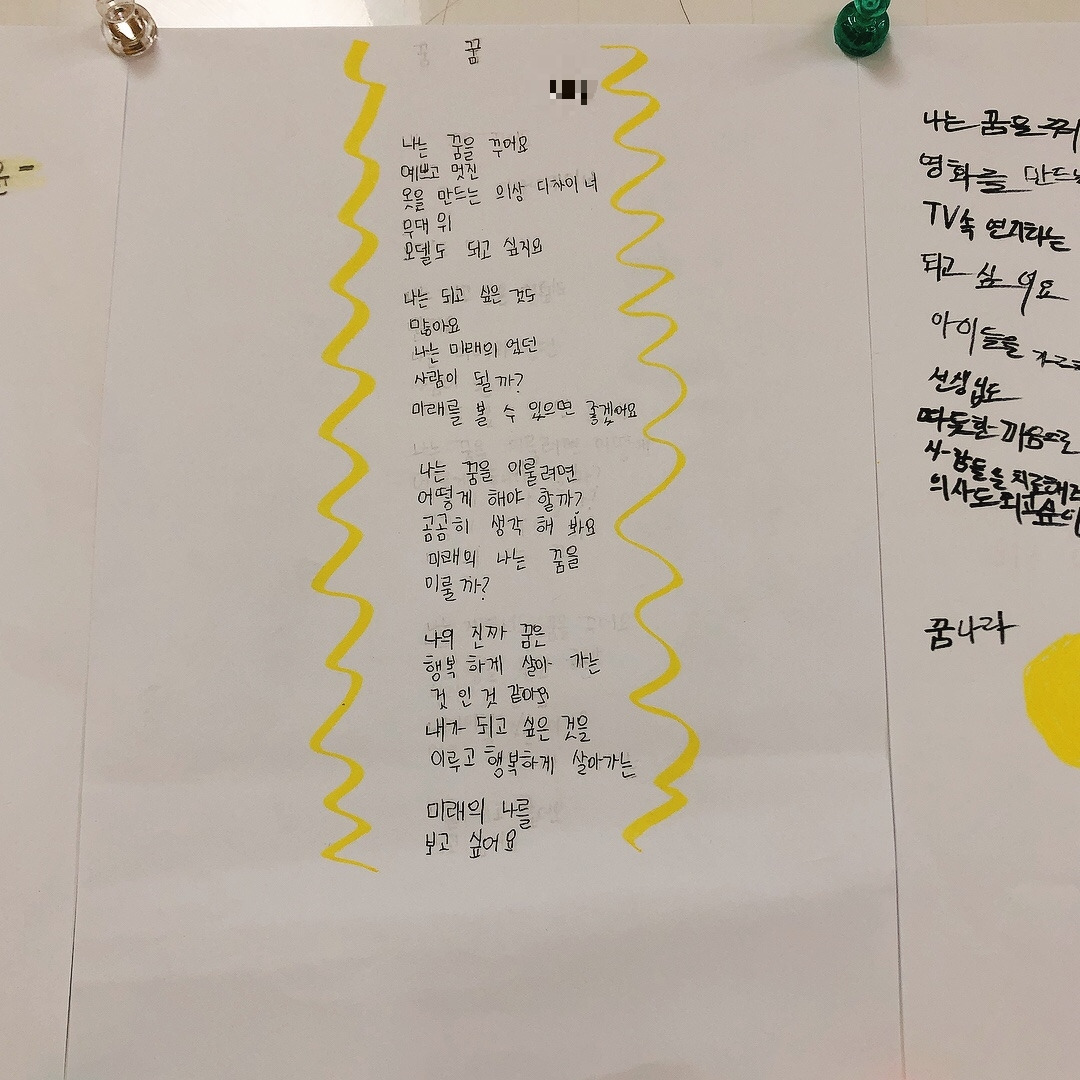 꿈
나는 꿈을 꾸어요
예쁘고 멋진
옷을 만드는 의상 디자이너
무대 위
모델도 되고 싶지요
나는 되고 싶은 것도
많아요
나는 미래의 어떤
사람이 될까?
미래를 볼 수 있으면 좋겠어요
나는 꿈을 이룰려면
어떻게 해야 할까?
곰곰히 생각 해 봐요
미래의 나는 꿈을
이룰까?
나의 진짜 꿈은
행복 하게 살아 가는
것 인 것 같아요
내가 되고 싶은 것을
이루고 행복하게 살아가는
미래의 나를
보고 싶어요
나는 꿈을
영화를 만드는
TV속 연기하는
되고 싶어요
아이들을
선생님도
따뜻한 마음으로
사람들을 치료해
의사도 되고싶어
꿈나라